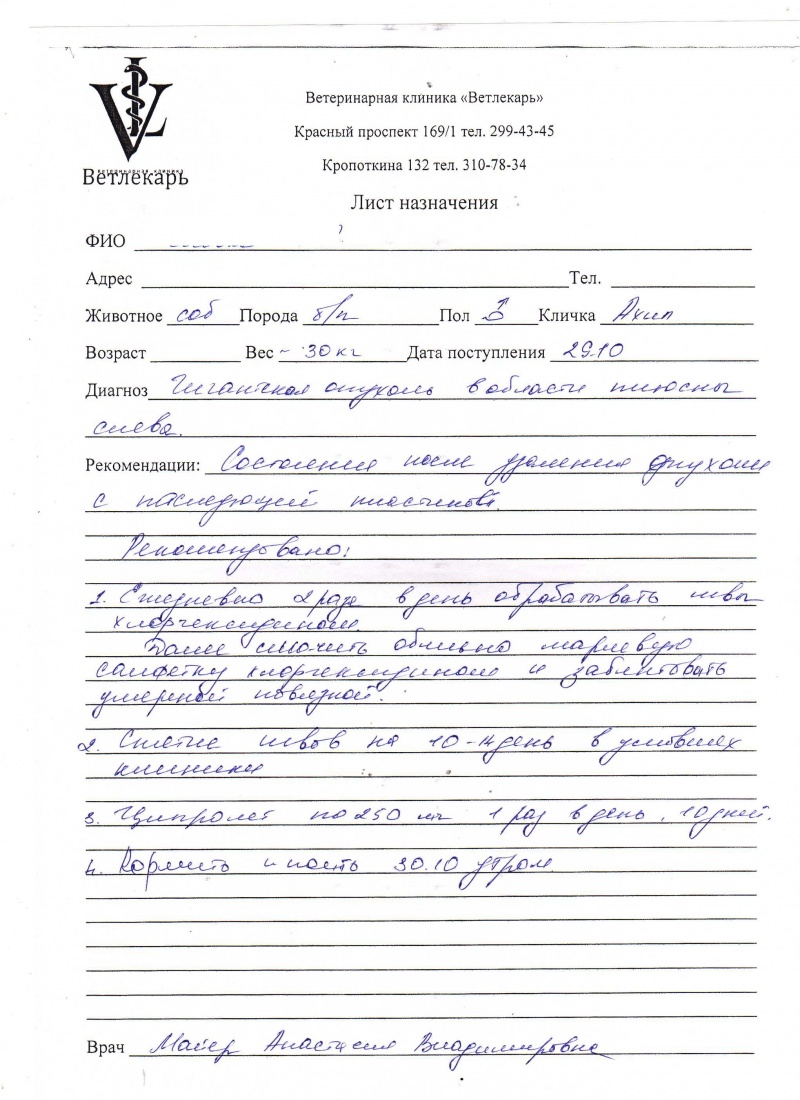 VL
ВЕТЕРИНАРНАЯ КЛИНИКА
Ветлекарь
Ветеринарная клиника «Ветлекарь»
Красный проспект 169/1 тел. 299-43-45
Кропоткина 132 тел. 310-78-34
Лист назначения
ФИО
Адрес Тел.
Животное соб Порода б/п Пол ♂ Кличка Ахил
Возраст Вес ~ 30 кг Дата поступления 29.10
Диагноз Гигантская опухоль в области плюсны
слева.
Рекомендации: Состояние после удаления опухоли
с последующей пластикой.
Рекомендовано:
1. Ежедневно 2 раза в день обрабатывать швы
хлоргексидином.
Далее смочить обильно марлевую
салфетку хлоргексидином и забинтовать
умерной повязкой.
2. Снятие швов на 10-14 день в условиях
клиники
3. Ципролет по 250 мг 1 раз в день, 10 дней.
4. Кормить и поить 30.10 утром
Врач Майер Анастасия Владимировна